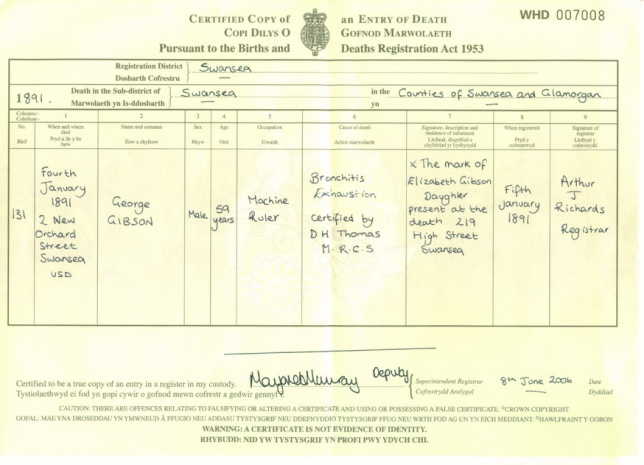 WHD 007008
CERTIFIED COPY of an ENTRY OF DEATH
COPI DILYS O GOFNOD MARWOLAETH
Pursuant to the Births and Deaths Registration Act 1953
Registration District Swansea
Dosbarth Cofrestru
1891. Death in the Sub-district of Swansea in the Counties of Swansea and Glamorgan
Marwolaeth yn Is-ddosbarth yn
Columns:- 1 2 3 4 5 6 7 8 9
No. When and where died Name and surname Sex Age Occupation Cause of death Signature, description and residence of informant When registered Signature of registrar
Rhif Pryd a lle y bu farw Enw a chyfenw Rhyw Oed Gwaith Achos marwolaeth Llofnod, disgrifiad a chyfeiriad yr hysbysydd Pryd y cofrestrwyd Llofnod y cofrestrydd
131
Fourth
January
1891
2 New
Orchard
Street
Swansea
USD
George
GIBSON
Male
59
years
Machine
Ruler
Bronchitis
Exhaustion
certified by
D H Thomas
M.R.C.S
X The mark of
Elizabeth Gibson
Daughter
present at the
death 219
High Street
Swansea
Fifth
January
1891
Arthur
J
Richards
Registrar
Certified to be a true copy of an entry in a register in my custody.
Tystiolaethwyd ei fod yn gopi cywir o gofnod mewn cofrestr a gedwir gennyf i.
Margaret Murray Deputy
Superintendent Registrar
Cofrestrydd Arolygol
8th June 2006
Date
Dyddiad
CAUTION: THERE ARE OFFENCES RELATING TO FALSIFYING OR ALTERING A CERTIFICATE AND USING OR POSSESSING A FALSE CERTIFICATE. ©CROWN COPYRIGHT
GOFAL: MAE YNA DROSEDDAU YN YMWNEUD Â FFUGIO NEU ADDASU TYSTYSGRIF NEU DDEFNYDDIO TYSTYSGRIF FFUG NEU WRTH FOD AG UN YN EICH MEDDIANT. ©HAWLFRAINT Y GORON
WARNING: A CERTIFICATE IS NOT EVIDENCE OF IDENTITY.
RHYBUDD: NID YW TYSTYSGRIF YN PROFI PWY YDYCH CHI.